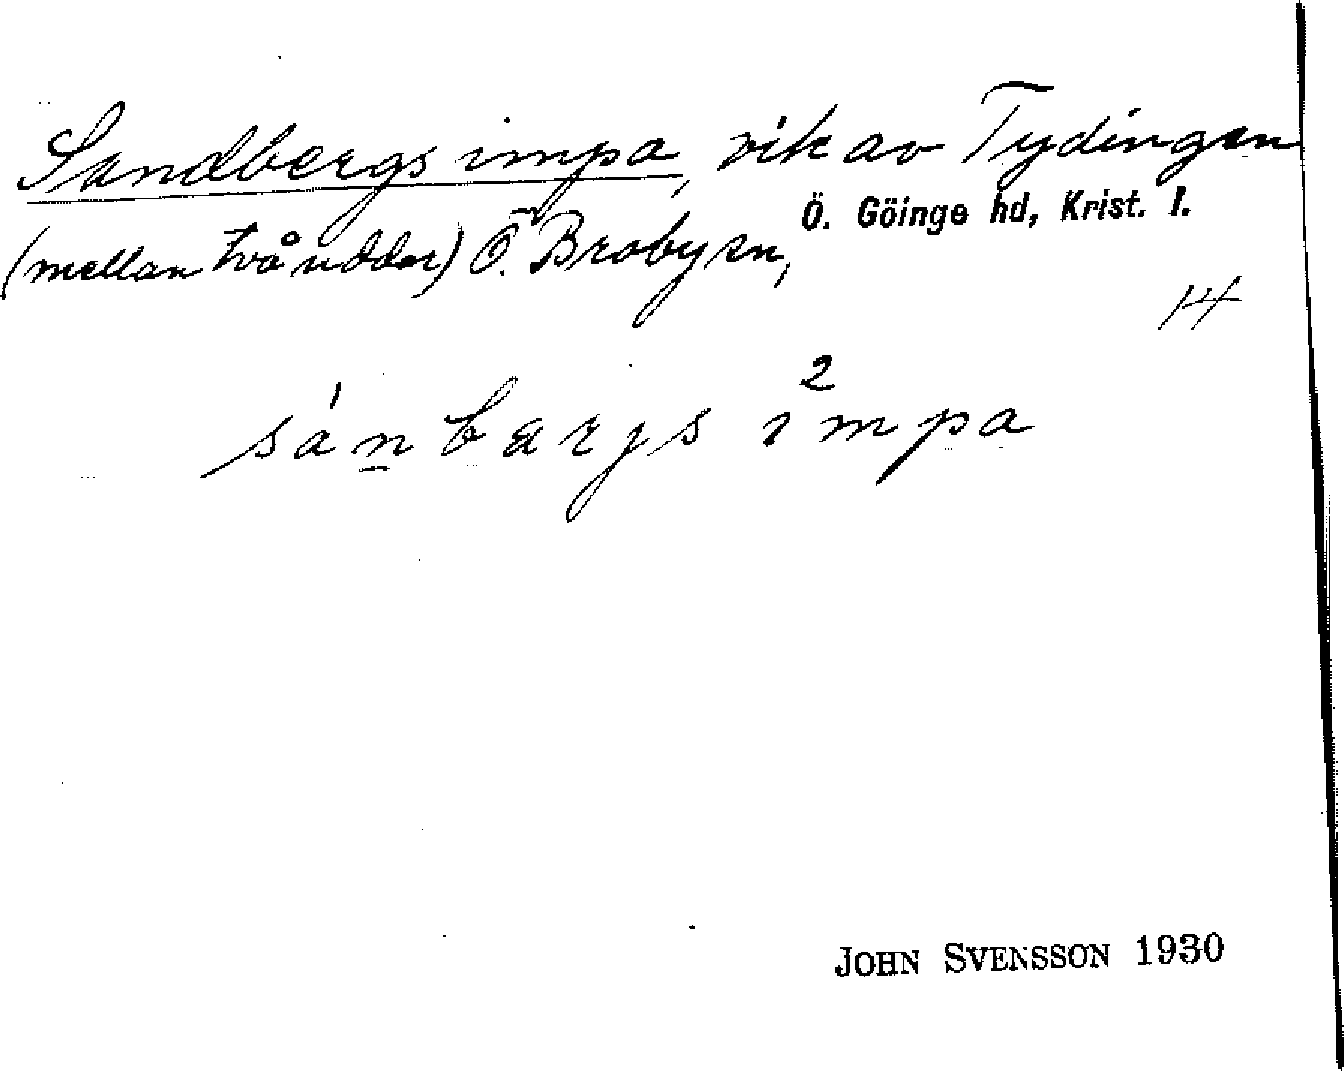 Sandbergs impa, vik av Tydingen
(mellan två uddar) Ö. Broby sn, Ö. Göinge hd, Krist. l.
14
sánbærjs ²impa
JOHN SVENSSON 1930